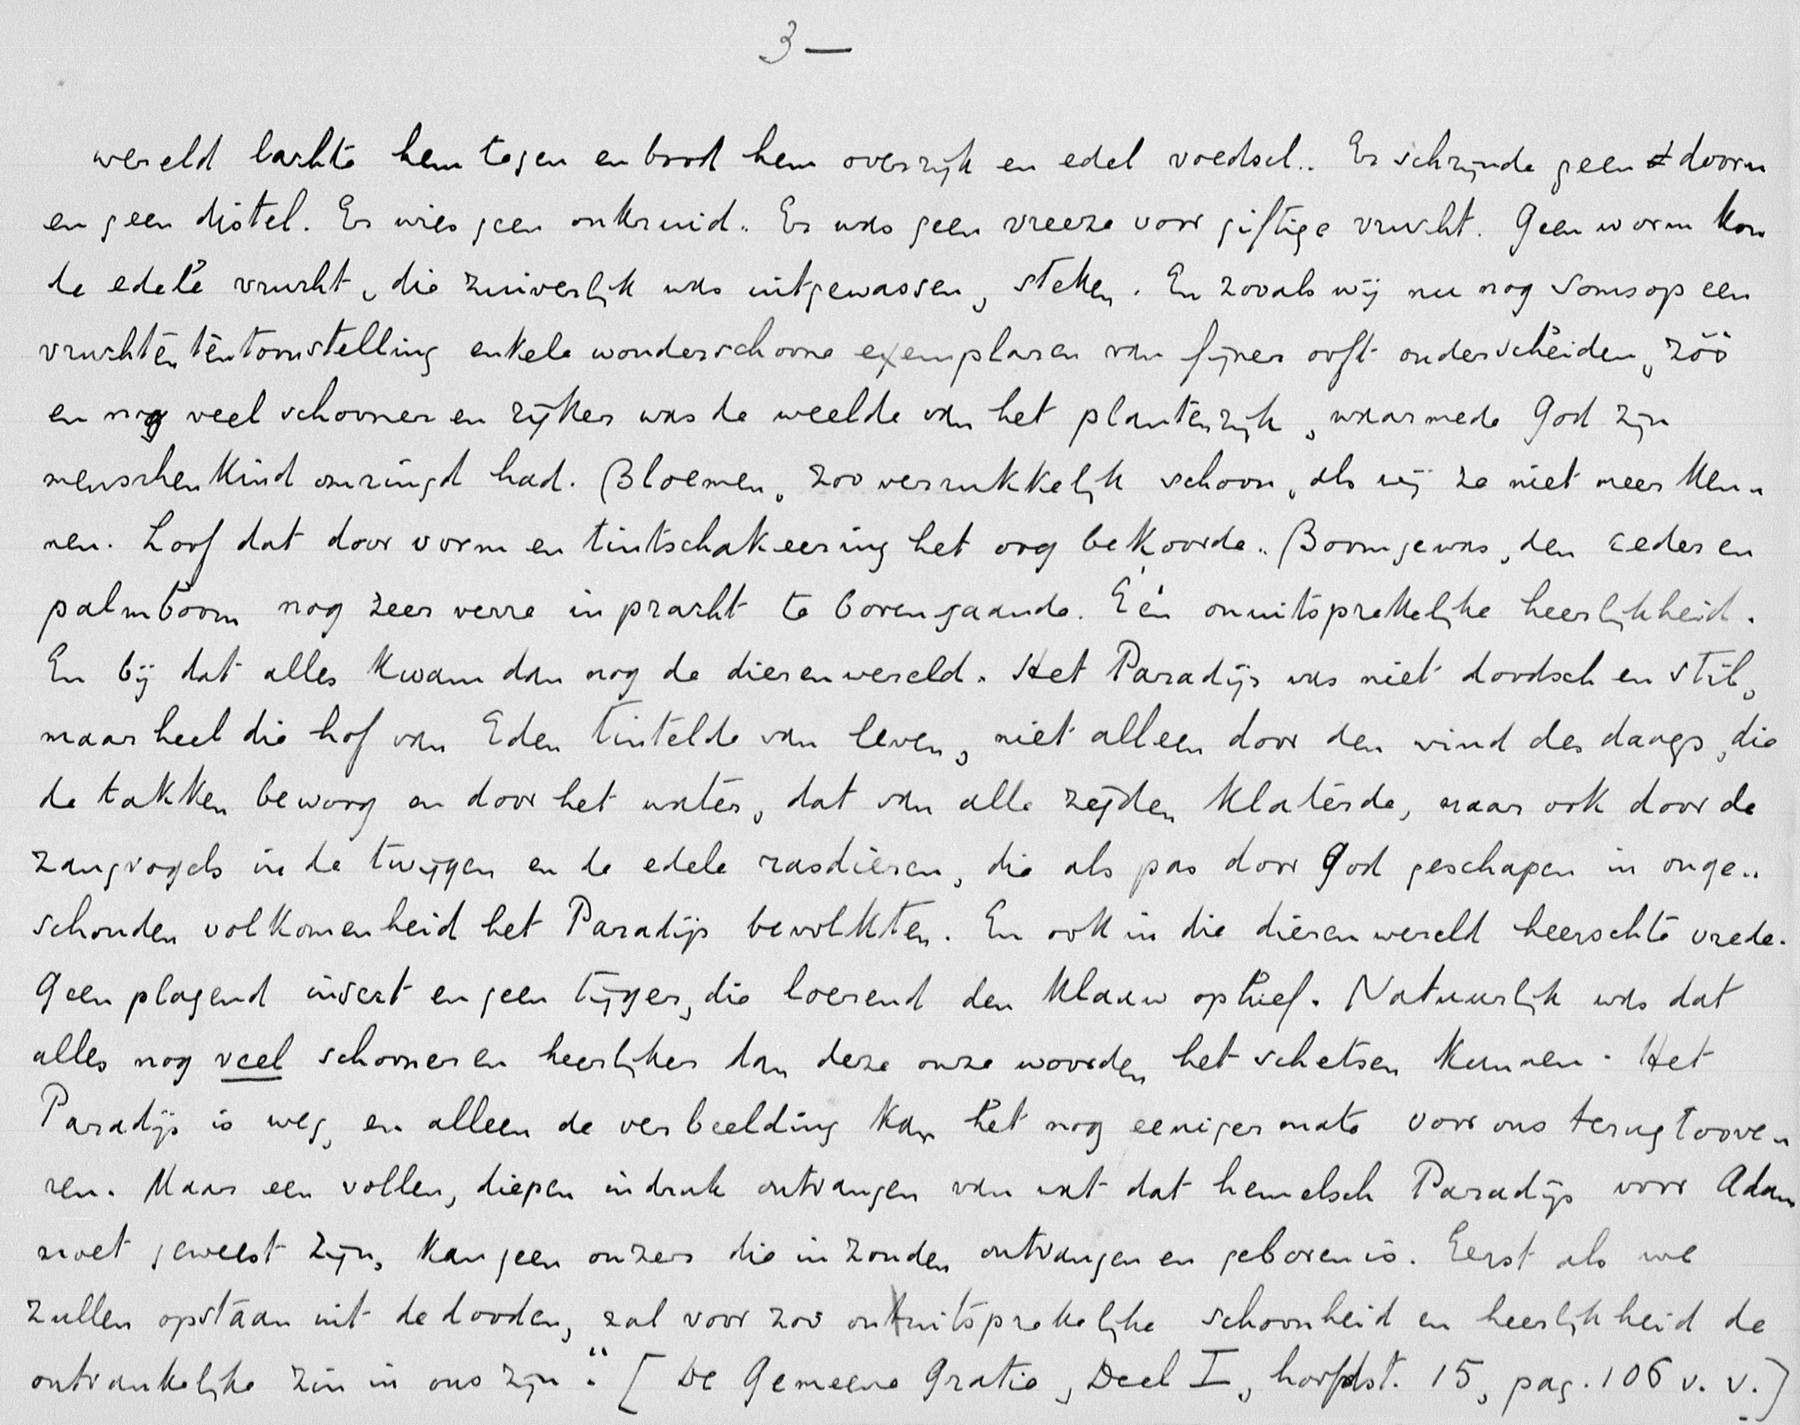 3 —
wereld lachte hem tegen en bood hem overrijk en edel voedsel.. Er schrijnde geen doorn
en geen distel. Er wies geen onkruid. Er was geen vreeze voor giftige vrucht. Geen worm kon
de edele vrucht, die zuiverlijk was uitgewassen, steken. En zooals wij nu nog soms op een
vruchtententoonstelling enkele wonderschoone exemplaren van fijner ooft onderscheiden, zóó
en nog veel schooner en rijker was de weelde van het plantenrijk, waarmede God zijn
menschenkind omringd had. Bloemen, zoo verrukkelijk schoon, als wij ze niet meer ken-
nen. Loof dat door vorm en tintschakeering het oog bekoorde.. Boomgewas, den ceder en
palmboom nog zeer verre in pracht te bovengaande. Eén onuitsprekelijke heerlijkheid.
En bij dat alles kwam dan nog de dierenwereld. Het Paradijs was niet doodsch en stil,
maar heel die hof van Eden tintelde van leven, niet alleen door den wind des daags, die
de takken bewoog en door het water, dat van alle zijden klaterde, maar ook door de
zangvogels in de twijgen en de edele rasdieren, die als pas door God geschapen in onge..
schonden volkomenheid het Paradijs bevolkten. En ook in die dierenwereld heerschte vrede.
Geen plagend insect en geen tijger, die loerend den klauw ophief. Natuurlijk was dat
alles nog veel schooner en heerlijker dan deze onze woorden het schetsen kunnen. Het
Paradijs is weg, en alleen de verbeelding kan het nog eenigermate voor ons terugtoove-
ren. Maar een vollen, diepen indruk ontvangen van wat dat hemelsch Paradijs voor Adam
moet geweest zijn, kan geen onzer die in zonden ontvangen en geboren is. Eerst als we
zullen opstaan uit de dooden, zal voor zoo onuitsprekelijke schoonheid en heerlijkheid de
ontvankelijke zin in ons zijn". [De Gemeene Gratie, Deel I, hoofdst. 15, pag. 106 v. v.]